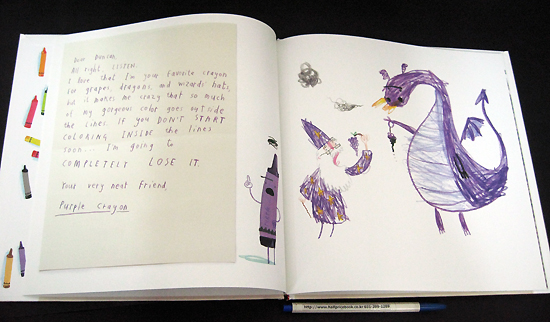 Dear Duncan,
All right, LISTEN.
I love that I'm your favorite crayon
for grapes, dragons, and wizards' hats,
but it makes me crazy that so much
of my gorgeous color goes outside
the lines. If you DON'T START
COLORING INSIDE the lines
soon... I'm going to
COMPLETELY LOSE IT.
Your very neat friend,
Purple Crayon